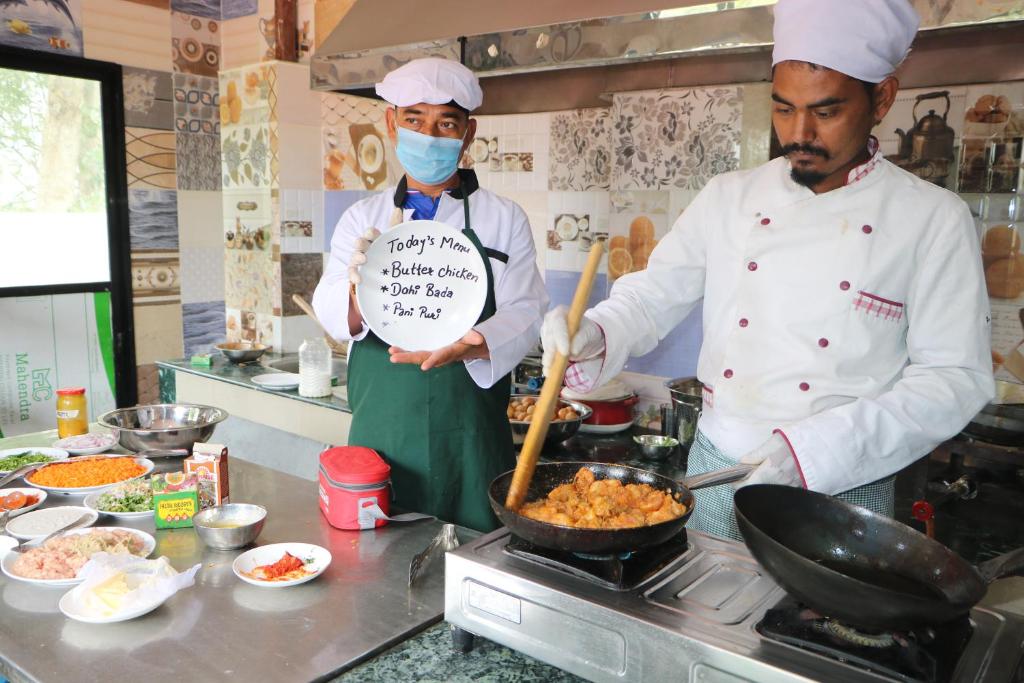 Today's Menu
* Butter chicken
* Dohi Bada
* Pani Puri
Mahendra